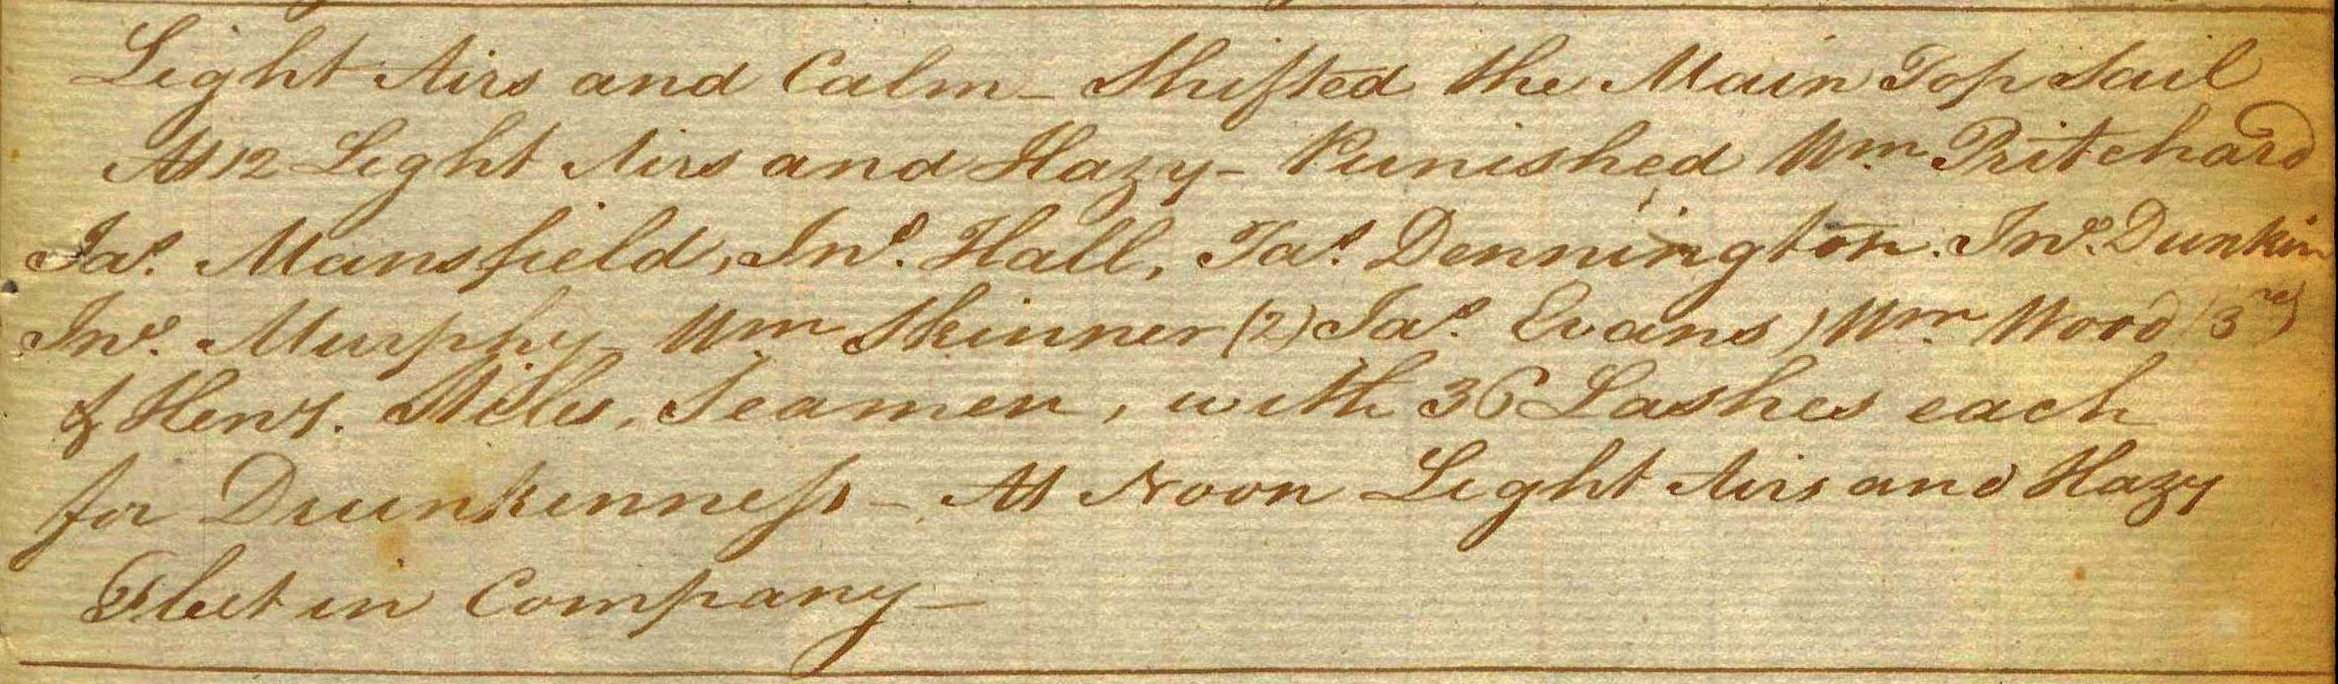 Light Airs and Calm – Shifted the Main Top Sail
At 12 Light Airs and Hazy – Punished Wm. Pritchard
Jas. Mansfield, Jno. Hall, Jas. Dennington. Jno. Dunkin
Jno. Murphy Wm Skinner (2) Jas. Evans, Wm. Wood (3rd)
& Heny. Stiles, Seamen, with 36 Lashes each
for Drunkenneſs – At Noon Light Airs and Hazy
Fleet in Company –